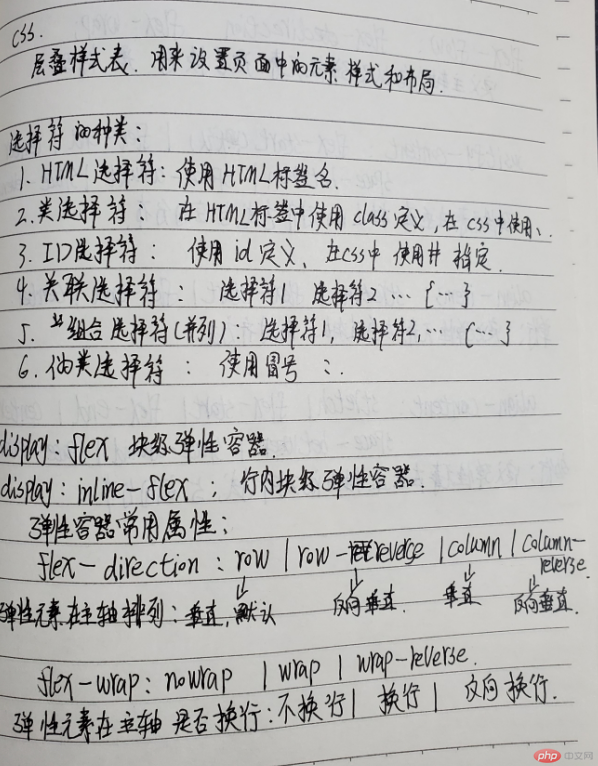 CSS.
层叠样式表. 用来设置页面中的元素样式和布局.
选择符的种类:
1. HTML选择符: 使用HTML标签名.
2. 类选择符: 在HTML标签中使用class定义, 在css中使用、.
3. ID选择符: 使用id定义、在css中使用井指定.
4. 关联选择符: 选择符1 选择符2 … {…}
5. 组合选择符(并列): 选择符1, 选择符2, … {…}
6. 伪类选择符: 使用冒号 :.
display: flex 块级弹性容器.
display: inline-flex ; 行内块级弹性容器.
弹性容器常用属性:
flex-direction: row | row-reverse | column | column-reverse.
弹性元素在主轴排列: 垂直, 默认 反向垂直. 垂直 反向垂直.
flex-wrap: nowrap | wrap | wrap-reverse.
弹性元素在主轴是否换行: 不换行 | 换行 | 反向换行.
php 中文网